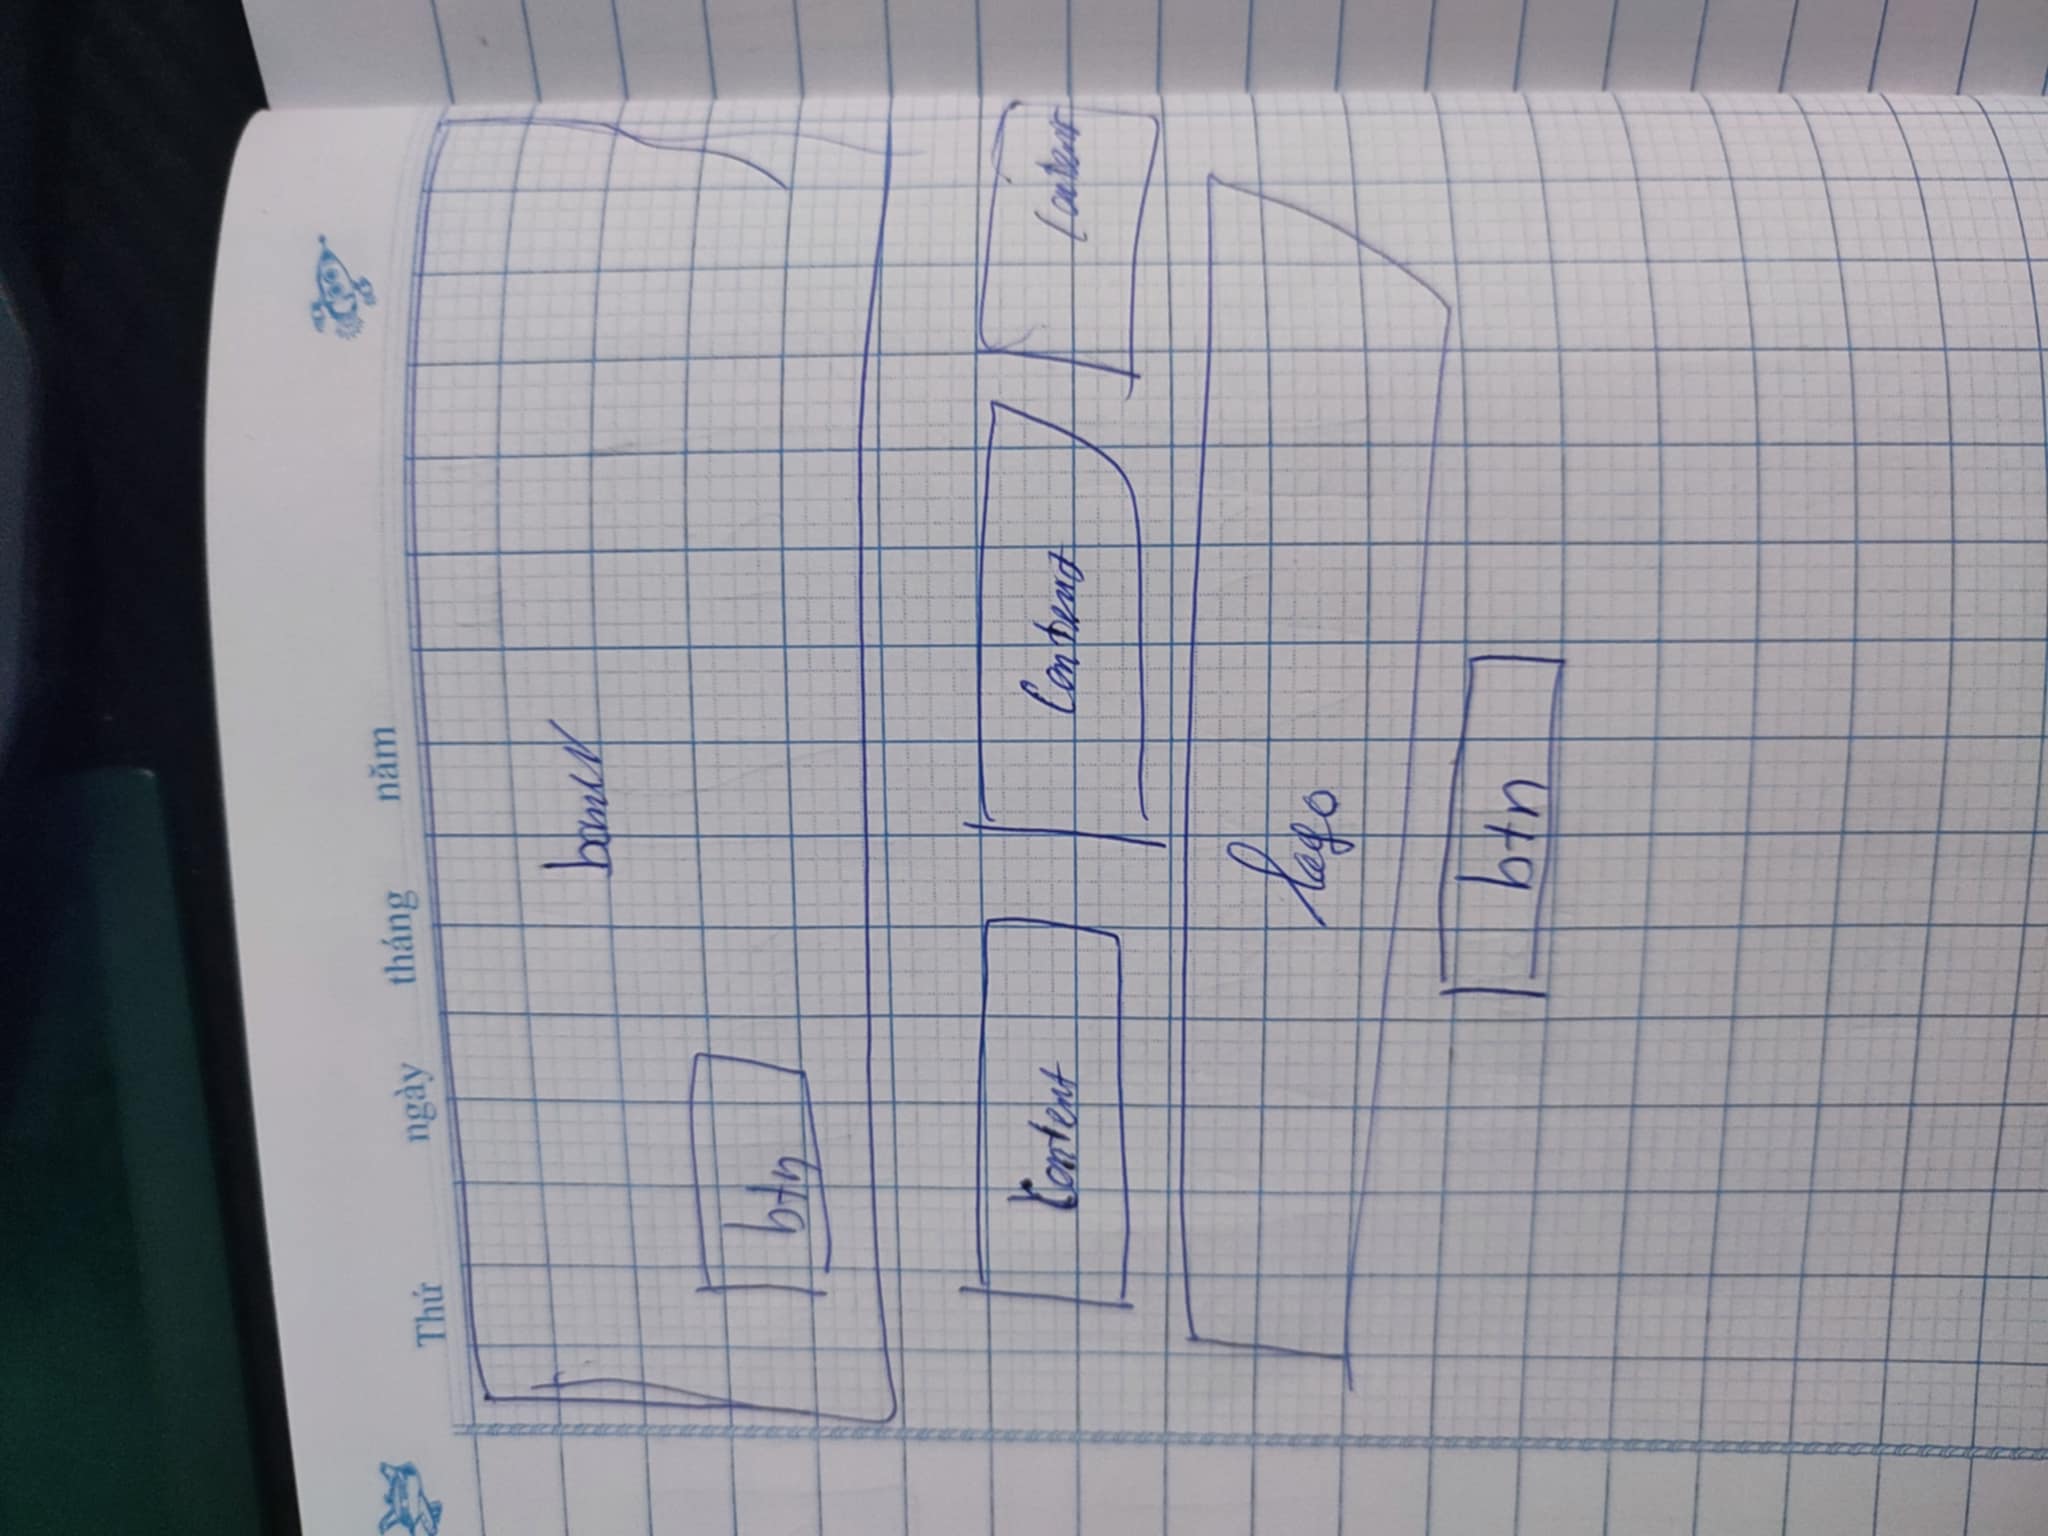 Thứ ngày tháng năm
banner
btn
Content Content Content
logo
btn